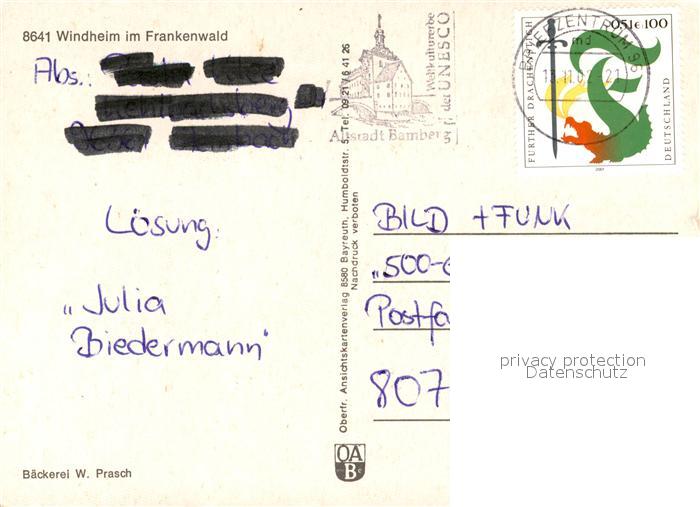 8641 Windheim im Frankenwald
Abs.:
Lösung:
"Julia
Biedermann"
Bäckerei W. Prasch
Oberfr. Ansichtskartenverlag 8580 Bayreuth, Humboldtstr. 5, Tel. 09 21 / 6 41 26
Nachdruck verboten
OA
B
Weltkulturerbe
der UNESCO
Altstadt Bamberg
BRIEFZENTRUM 96
FURTHER DRACHENSTICH
0,51 € 100
DEUTSCHLAND
2001
BILD + FUNK
"500-
Postfa
807
privacy protection
Datenschutz